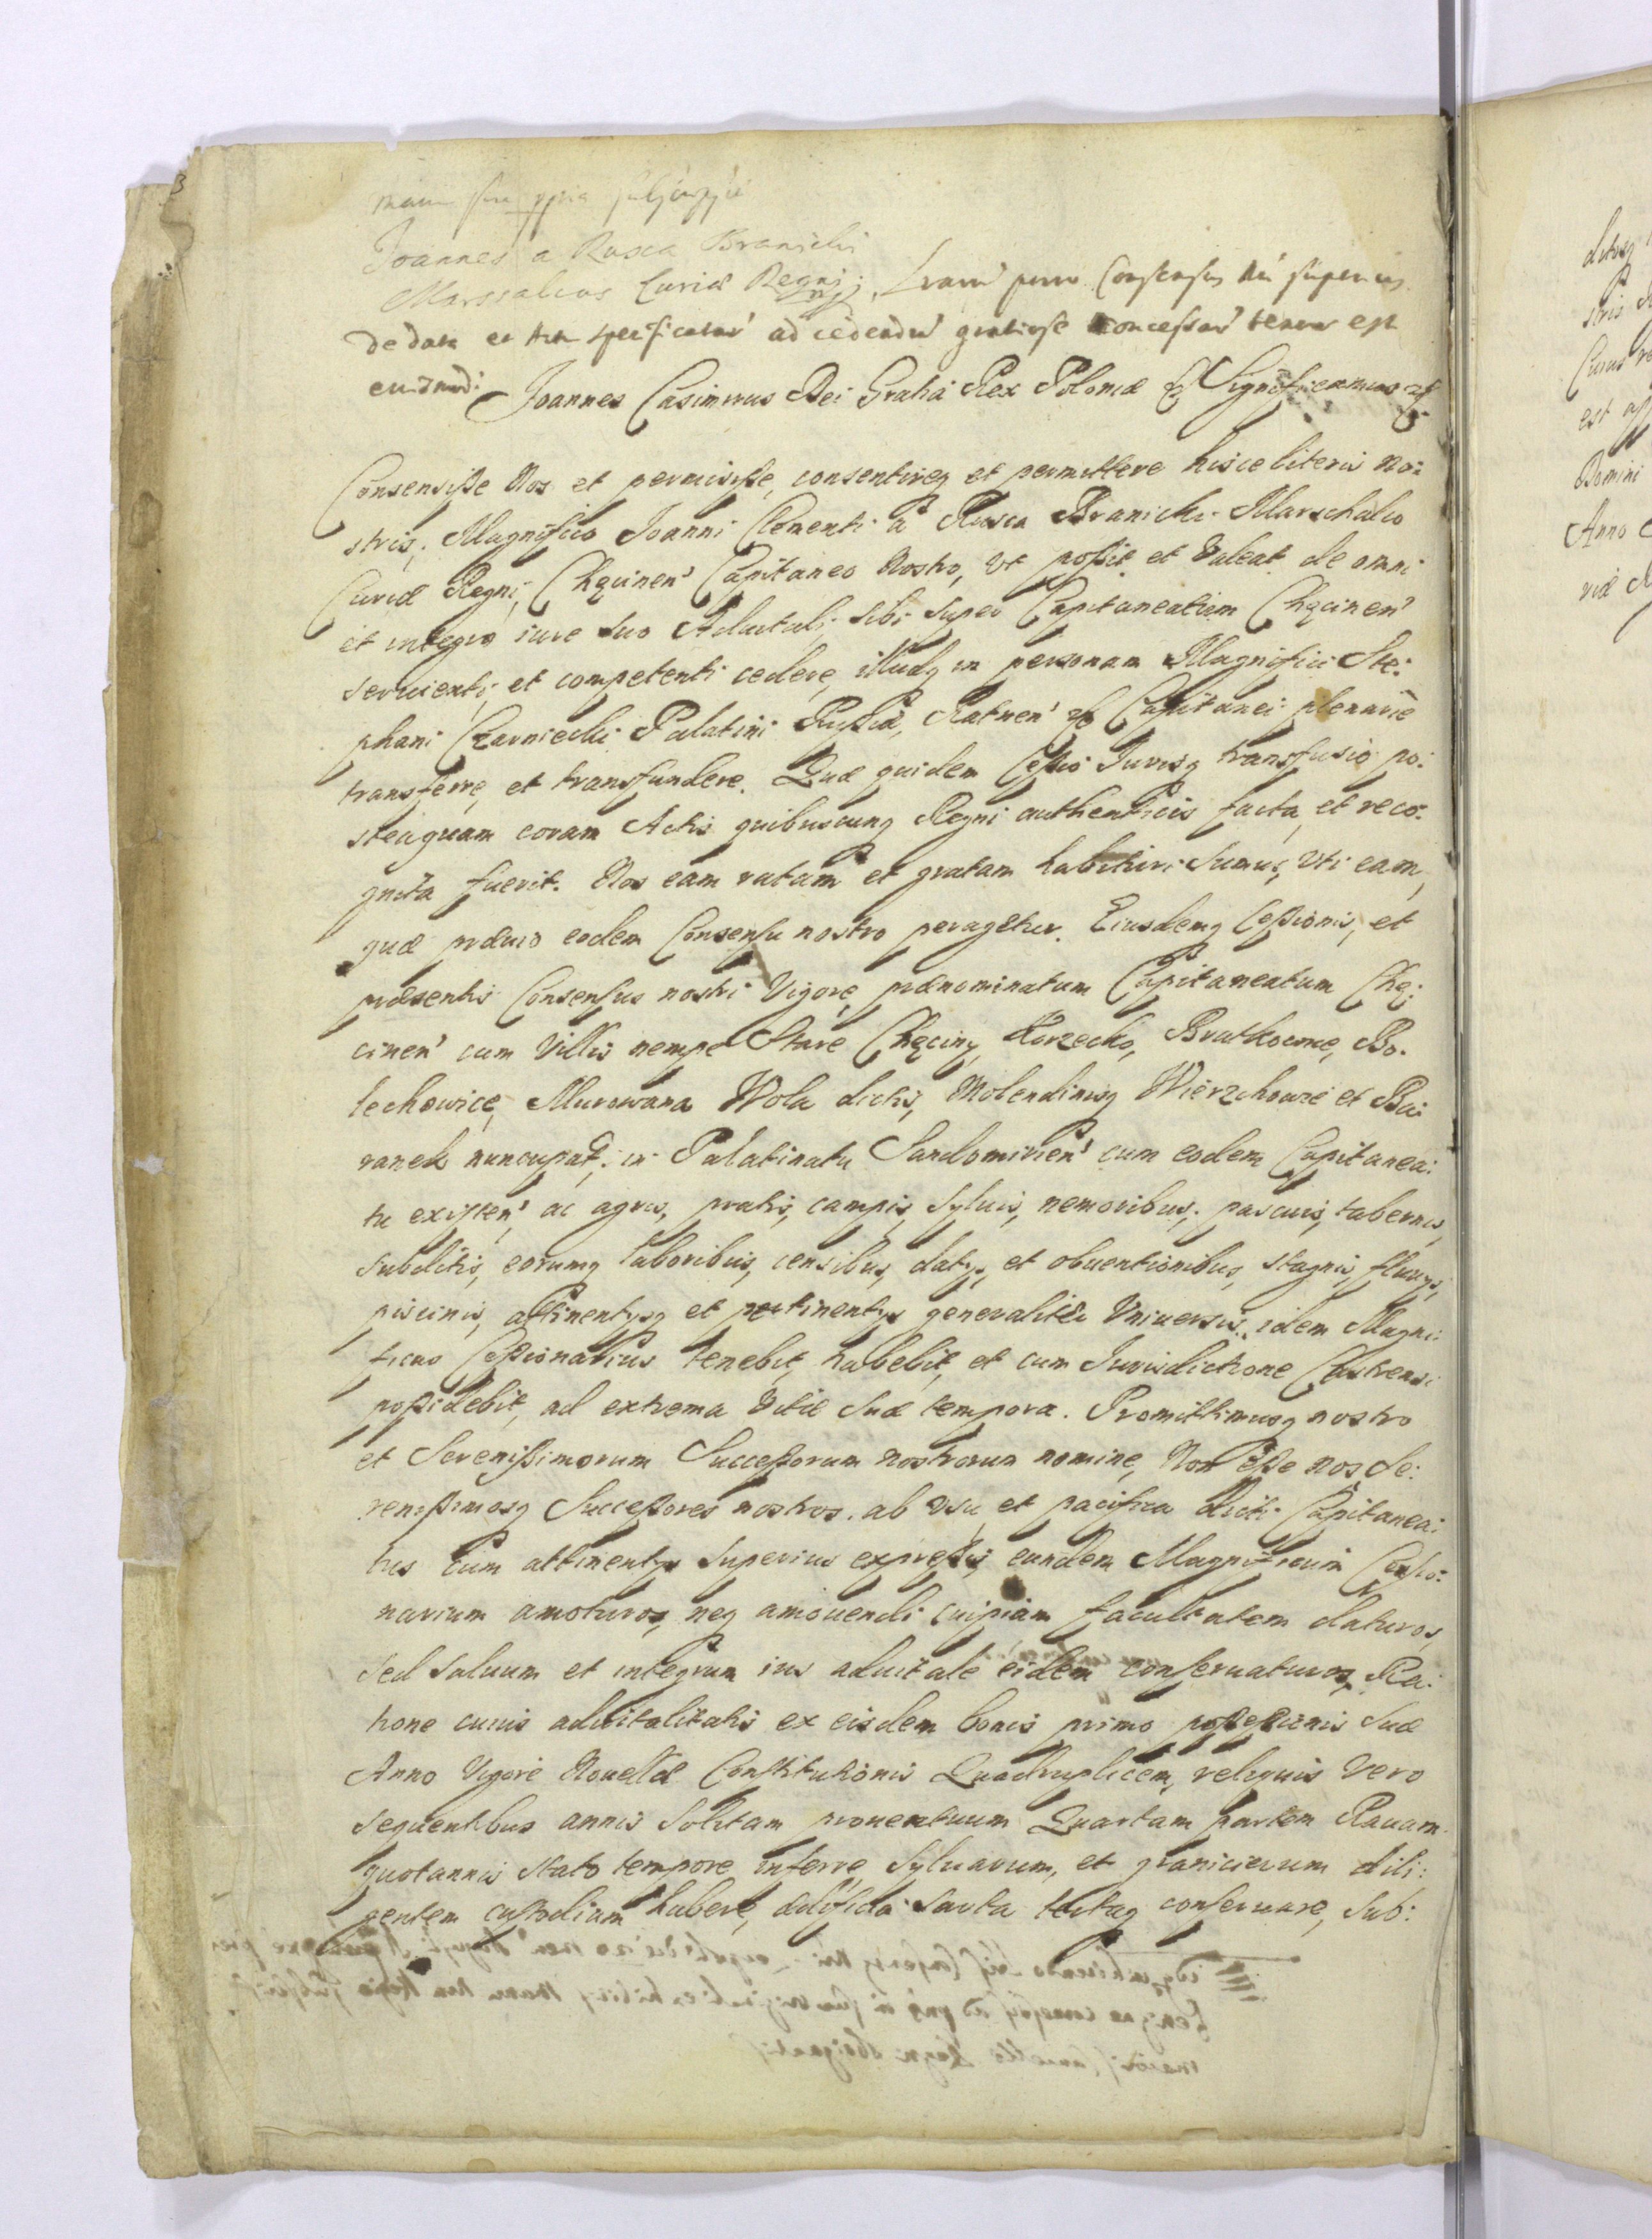 manu sua ppria subscripsit
Joannes a Rusca Branicki
Marssalcus Curiæ Regni. Lrarū porro Consensus Rū superius
de data et Actu specificatar' ad cedendū gratiose concessar' tenor est
eiusmodi Joannes Casimirus Dei Gratia Rex Poloniæ &c Significamus &c
Consensisse Nos et permisisse, consentireq et permittere hisce literis no:
stris, Magnifico Joanni Clementi a Rusca Branicki Marschalco
Curiæ Regni, Chęcinen' Capitaneo Nostro, vt possit et Valeat de omni
et integro iure suo Aduitali, sibi super Capitaneatum Chęcinen'
seruienti, et competenti cedere, illudq in personam Magnifici Ste:
phani Czarniecki Palatini Russiæ, Ratnen' &c Capitanei plenarie
transferre, et transfundere. Quæ quidem Cessio Jurisq transfusio po:
steaquam coram Actis quibuscunq Regni authenticis facta, et reco:
gnita fuerit. Nos eam ratam et gratam habituri sumus, Vti eam,
quæ præuio eodem Consensu nostro peragetur. Eiusdemq Cessionis, et
præsentis Consensus nostri Vigore, prænominatum Capitaneatum Chę:
cinen' cum Villis nempe Stare Chęciny, Korzecko, Bratkowice, Bo:
lechowice, Murowana Wola dictis, Molendinisq Wierzchowie et Ba:
ranek nuncupat, in Palatinatu Sandomirien' cum eodem Capitanea:
tu existen' ac agris, pratis, campis, syluis, nemoribus, pascuis, tabernis,
subditis, eorumq laboribus, censibus, datijs, et obuentionibus, stagnis, fluuijs,
piscinis, attinentijsq et pertinentijs generaliter Vniuersis, idem Magni:
ficus Cessionarius tenebit, habebit, et cum Jurisdictione Castrensi
possidebit, ad extrema Vitæ suæ tempora. Promittimusq nostro
et Serenissimorum Successorum nostrorum nomine, Non esse nos Se:
renissimosq Successores nostros, ab vsu, et pacifica dicti Capitanea:
tus cum attinentijs superius expressis, eundem Magnificum Cessio:
narium amoturos, neq amouendi cuipiam facultatem daturos,
sed saluum et integrum ius aduitale eidem conseruaturos, Ra:
tione cuius aduitalitatis ex eisdem bonis primo possessionis suæ
Anno Vigore Nouellæ Constitutionis Quadruplicem, reliquis Vero
sequentibus annis solitam prouentuum Quartam partem Rauam
quotannis stato tempore inferre, syluarum, et granicierum dili:
gentem custodiam habere, ædificia sarta tectaq conseruare, sub: